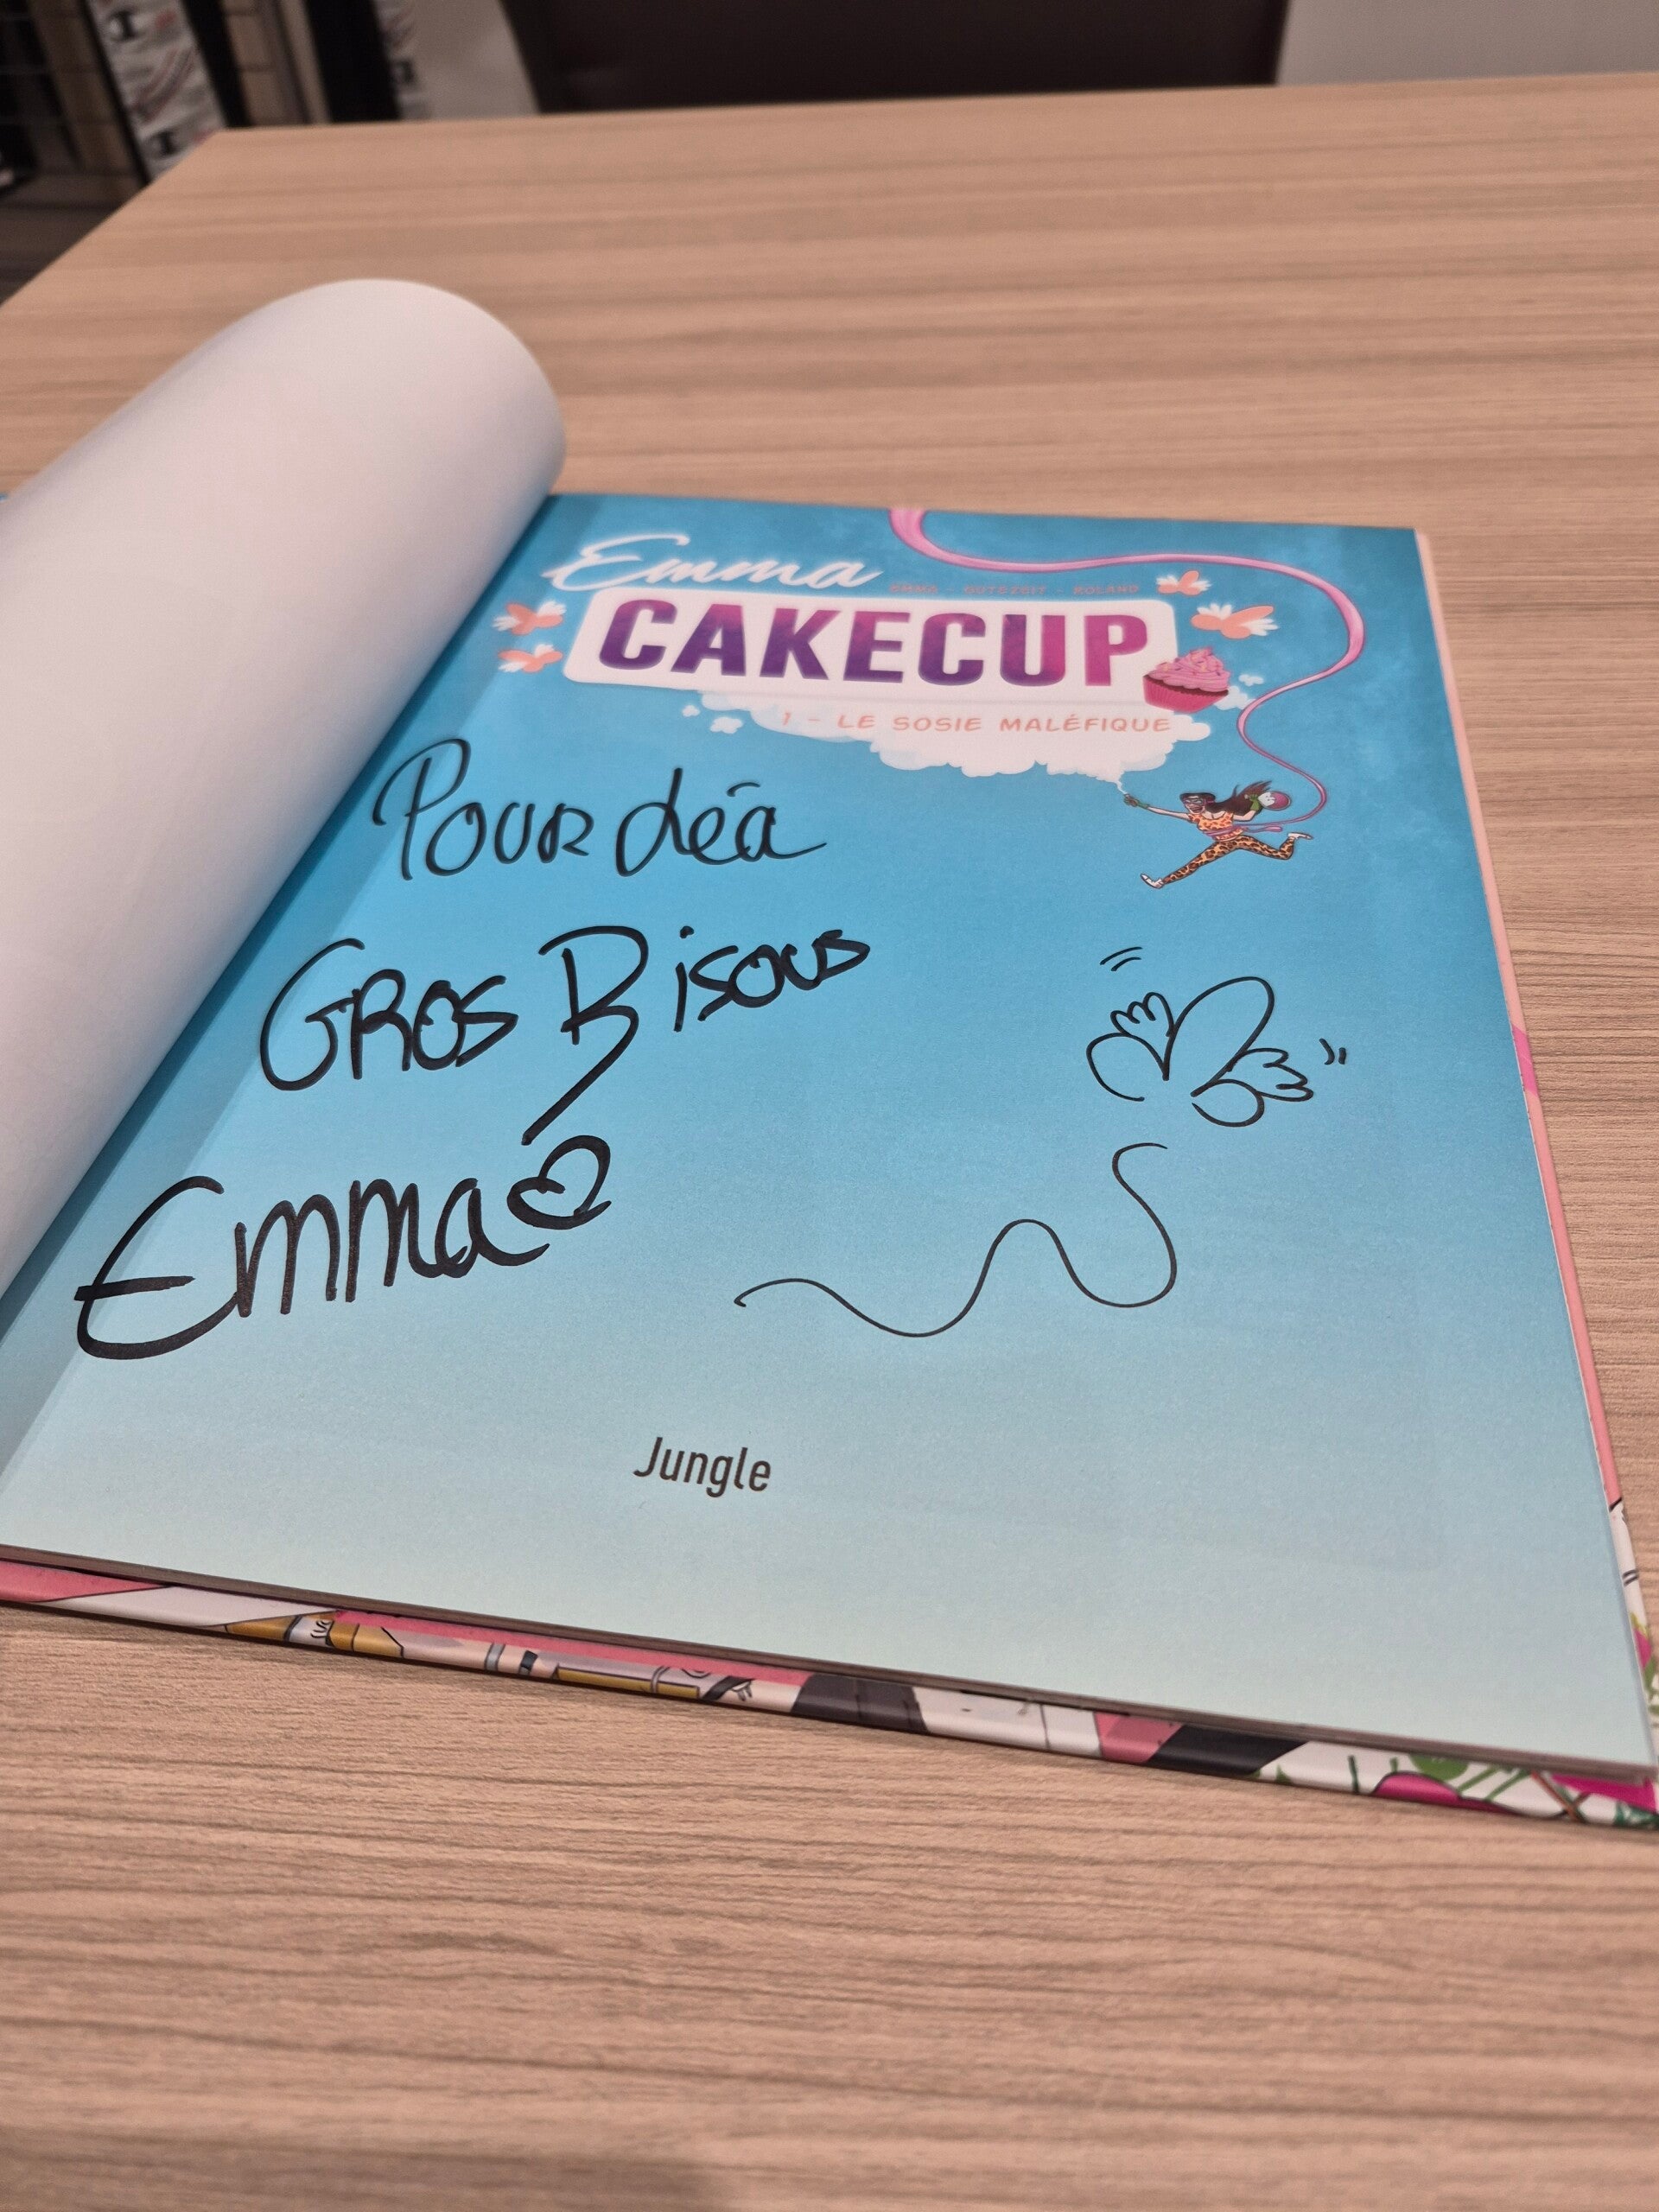 Emma
EMMA - GUTEZEIT - ROLAND
CAKECUP
1 - LE SOSIE MALÉFIQUE
Pour Léa
Gros Bisous
Emma
Jungle